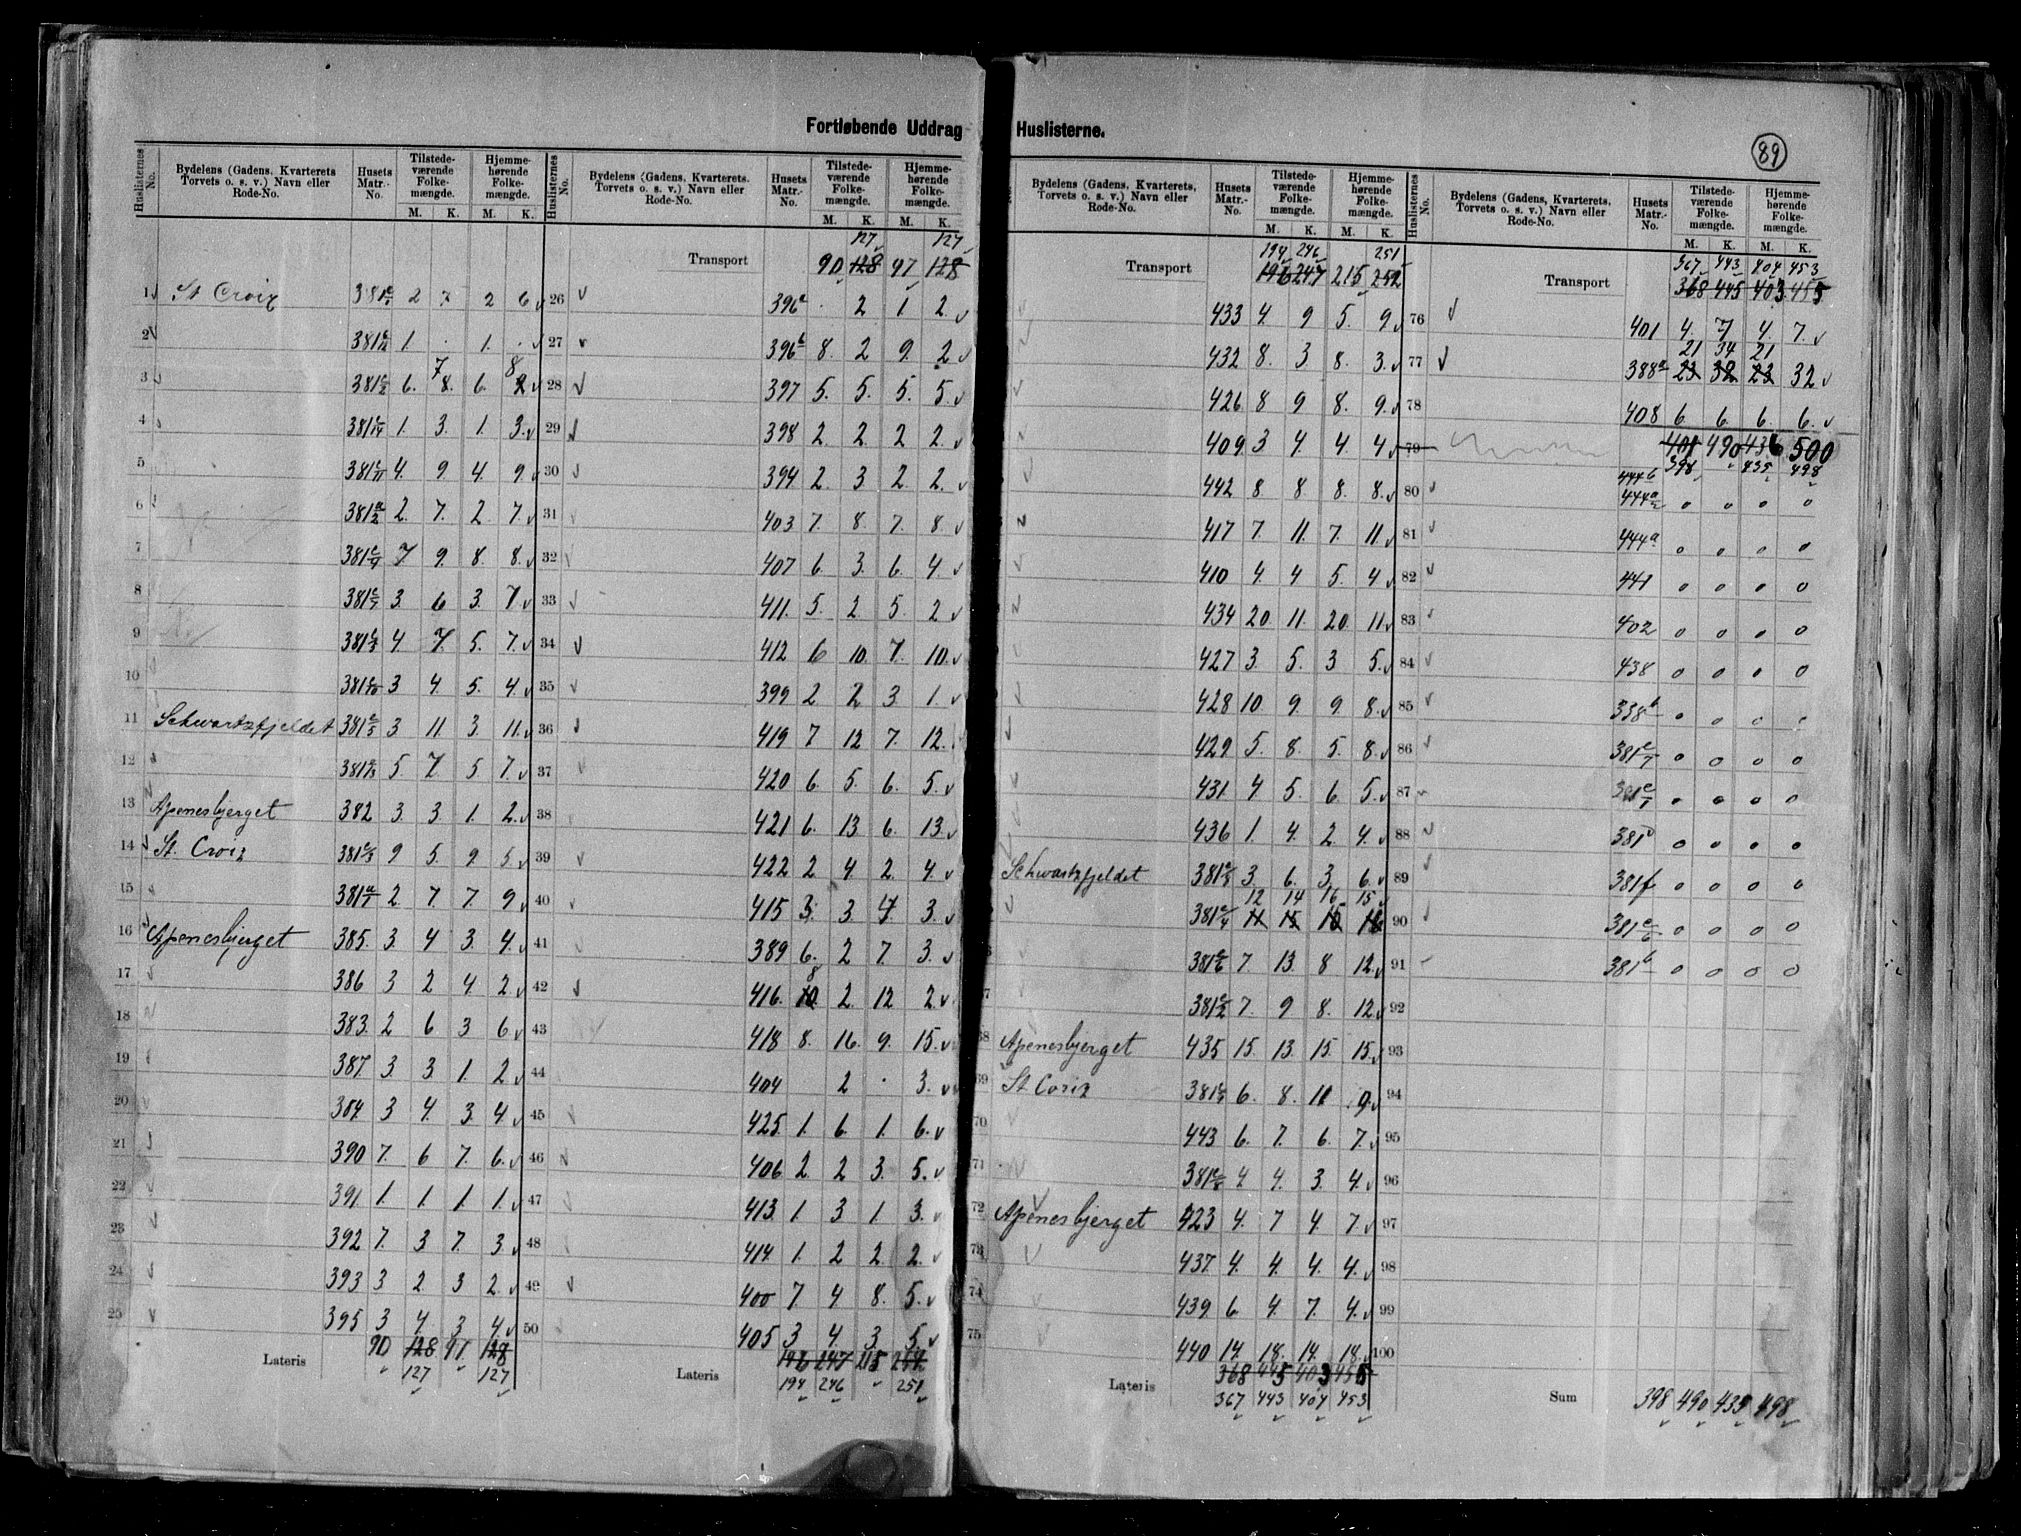 Fortløbende Uddrag Huslisterne.
89
Huslisternes No. | Bydelens (Gadens, Kvarterets Torvets o. s. v.) Navn eller Rode-No. | Husets Matr.-No. | Tilstedeværende Folkemængde. M. K. | Hjemmehørende Folkemængde. M. K.
1 St Croix 381 2 7 2 6
2 381 1. . 1. .
3 381 6. 7 8. 6 8
4 381 1. 3. 1. 3.
5 381 4. 9 4. 9
6 381 2. 7. 2. 7.
7 381 7 9. 8. 8.
8 381 3. 6 3. 7
9 381 4 7. 5. 7.
10 381 3 4. 5. 4.
11 Schwartzfjeldet 381 3 11. 3. 11.
12 381 5 7. 5 7.
13 Apenesbjerget 382 3. 3 1. 2.
14 St. Croix 381 9 5. 9. 5.
15 381 2 7. 7. 9
16 Apenesbjerget 385. 3. 4 3. 4.
17 386 3 2 4 2
18 383. 2 6 3 6
19 387. 3. 3 1. 2
20 384. 3 4. 3. 4
21 390 7. 6 7. 6.
22 391 1. 1. 1. 1.
23 392 7. 3 7. 3.
24 393 3 2 3 2.
25 395 3 4 3 4
Lateris 90 128 97. 128
127 127
127 127
Transport 90 128 97 128
26 396a . 2 1 2.
27 396b 8. 2 9. 2
28 397 5. 5. 5. 5.
29 398 2. 2. 2 2.
30 394 2. 3 2. 2.
31 403 7. 8. 7. 8
32 407 6. 3. 6. 4.
33 411. 5. 2 5. 2
34 412 6 10. 7. 10.
35 399 2 2 3 1.
36 419 7 12 7. 12.
37 420 6. 5. 6. 5.
38 421 6. 13. 6. 13.
39 422 2 4 2. 4.
40 415 3. 3. 4 3.
41 389 6. 2 7. 3.
42 416. 8 10 2. 12 2
43 418 8. 16. 9. 15.
44 404 2 . 3.
45 425. 1. 6. 1. 6.
46 406 2. 2 3. 5.
47 413. 1. 3 1. 3.
48 414. 1. 2 2. 2.
49 400 7. 4 8. 5.
50 405 3 4. 3. 5
Lateris 196 247 215
194 246 251
194 246 251
Transport 196 247 215 252
433 4. 9 5. 9.
432 8. 3 8. 3.
426 8 9 8. 9.
409. 3 4. 4. 4
442 8 8 8. 8.
417 7. 11. 7. 11.
410 4. 4 5. 4
434 20 11. 20. 11
427 3. 5. 3 5.
428 10. 9. 9. 8.
429 5. 8. 5. 8.
431 4 5. 6. 5.
436 1. 4. 2 4.
Schwartzfjeldet 381 3. 6. 3. 6.
12 14 16 15
381 11 15
381 7. 13. 8 12.
381 7. 9 8. 12.
68 Apenesbjerget 435 15. 13. 15. 15.
69 St Corix 381 6. 8. 9.
70 443 6. 7. 6. 7.
71 381 4 4. 3 4.
72 Apenesbjerget 423 4. 7 4. 7
73 437. 4. 4. 4. 4.
74 439. 6 4. 7. 4.
75 440 14. 18. 14. 18.
Lateris 368 445 403 455
367 443 404 453
367 443 404 453
Transport 368 445 403 455
76 401 4. 7 4 7.
21 34 21
77 388a 23 32 23 32
78 408 6 6. 6. 6.
79 401 490 436 500
398 435 498
444b
80 444a o o o o
81 444a o o o o
82 441 o o o o
83 402 o o o o
84 438 o o o o
85 338b o o o o
86 381 o o o o
87 381 o o o o
88 381 o o o o
89 381f o o o o
90 381 o o o o
91 381b o o o o
92
93
94
95
96
97
98
99
100
Sum 398 490 435 498